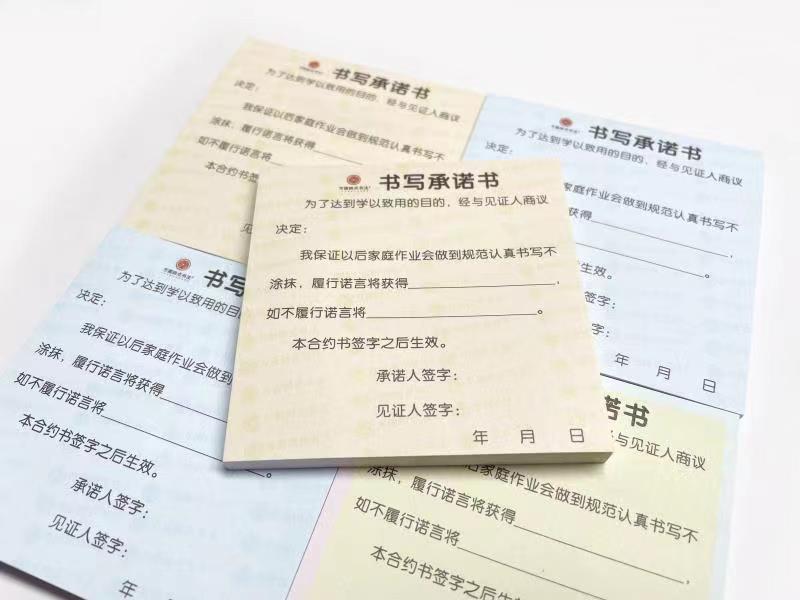 书写承诺书
为了达到学以致用的目的、经与见证人商议
决定：
我保证以后家庭作业会做到规范认真书写不
涂抹，履行诺言将
如不履行诺言将
本合约书签
书写承诺书
为了达到学以致用的目的、经与见证人商议
决定：
家庭作业会做到规范认真书写不
得
。
生效。
签字：
签字：
年 月 日
书写承诺书
为了达到学以致用的目的、经与见证人商议
决定：
我保证以后家庭作业会做到规范认真书写不
涂抹，履行诺言将获得，
如不履行诺言将。
本合约书签字之后生效。
承诺人签字：
见证人签字：
年 月 日
书写
为了达到学以致用的目
决定：
我保证以后家庭作业会做到
涂抹，履行诺言将获得
如不履行诺言将。
本合约书签字之后生效。
承诺人签字：
见证人签字：
年
诺书
经与见证人商议
后家庭作业会做到规范认真书写不
涂抹，履行诺言将获得，
如不履行诺言将
本合约书签字之后生